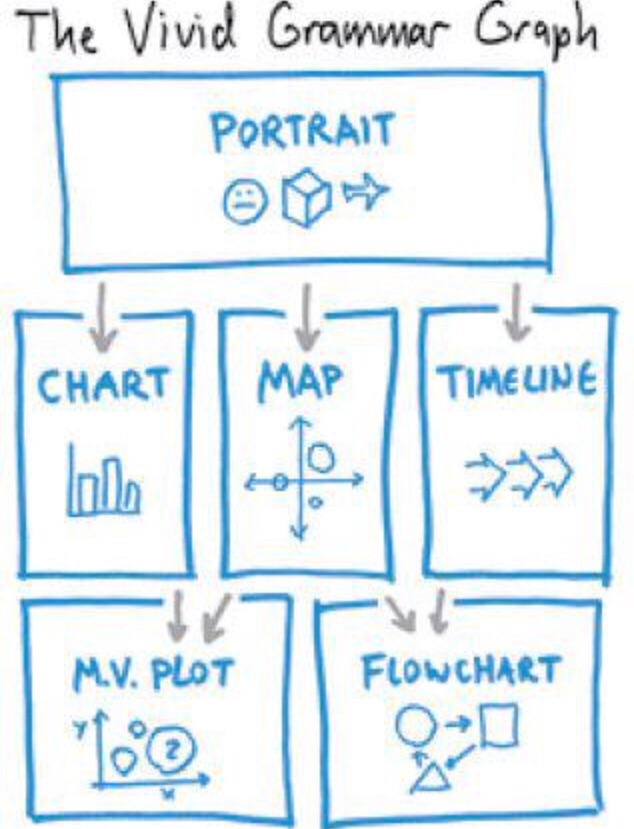 The Vivid Grammar Graph
PORTRAIT
CHART
MAP
TIMELINE
M.V. PLOT
y
2
x
FLOWCHART